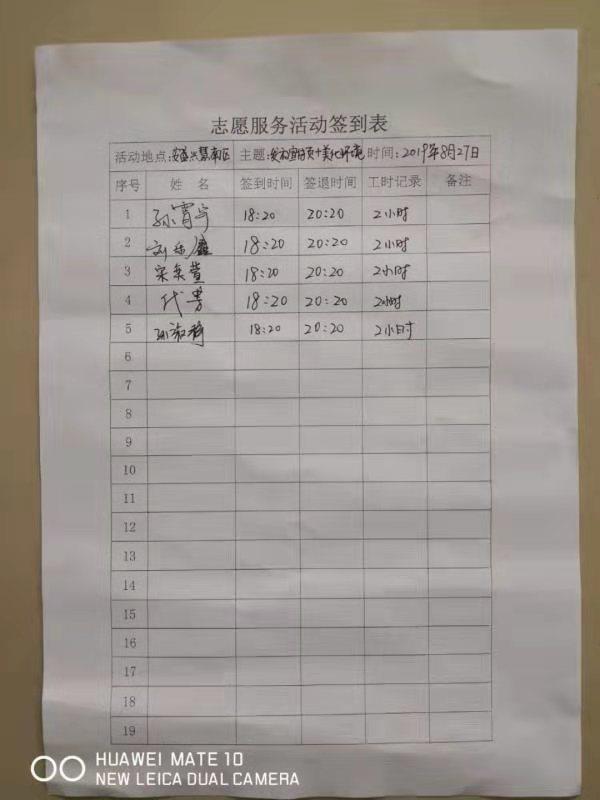 志愿服务活动签到表
活动地点: 兴慧南区 主题: 发宣传页+美化环境 时间: 2019年8月27日
序号 姓名 签到时间 签退时间 工时记录 备注
1 孙霄宇 18:20 20:20 2小时
2 刘 18:20 20:20 2小时
3 宋奕萱 18:20 20:20 2小时
4 代芳 18:20 20:20 2小时
5 孙 18:20 20:20 2小时
6
7
8
9
10
11
12
13
14
15
16
17
18
19
HUAWEI MATE 10
NEW LEICA DUAL CAMERA